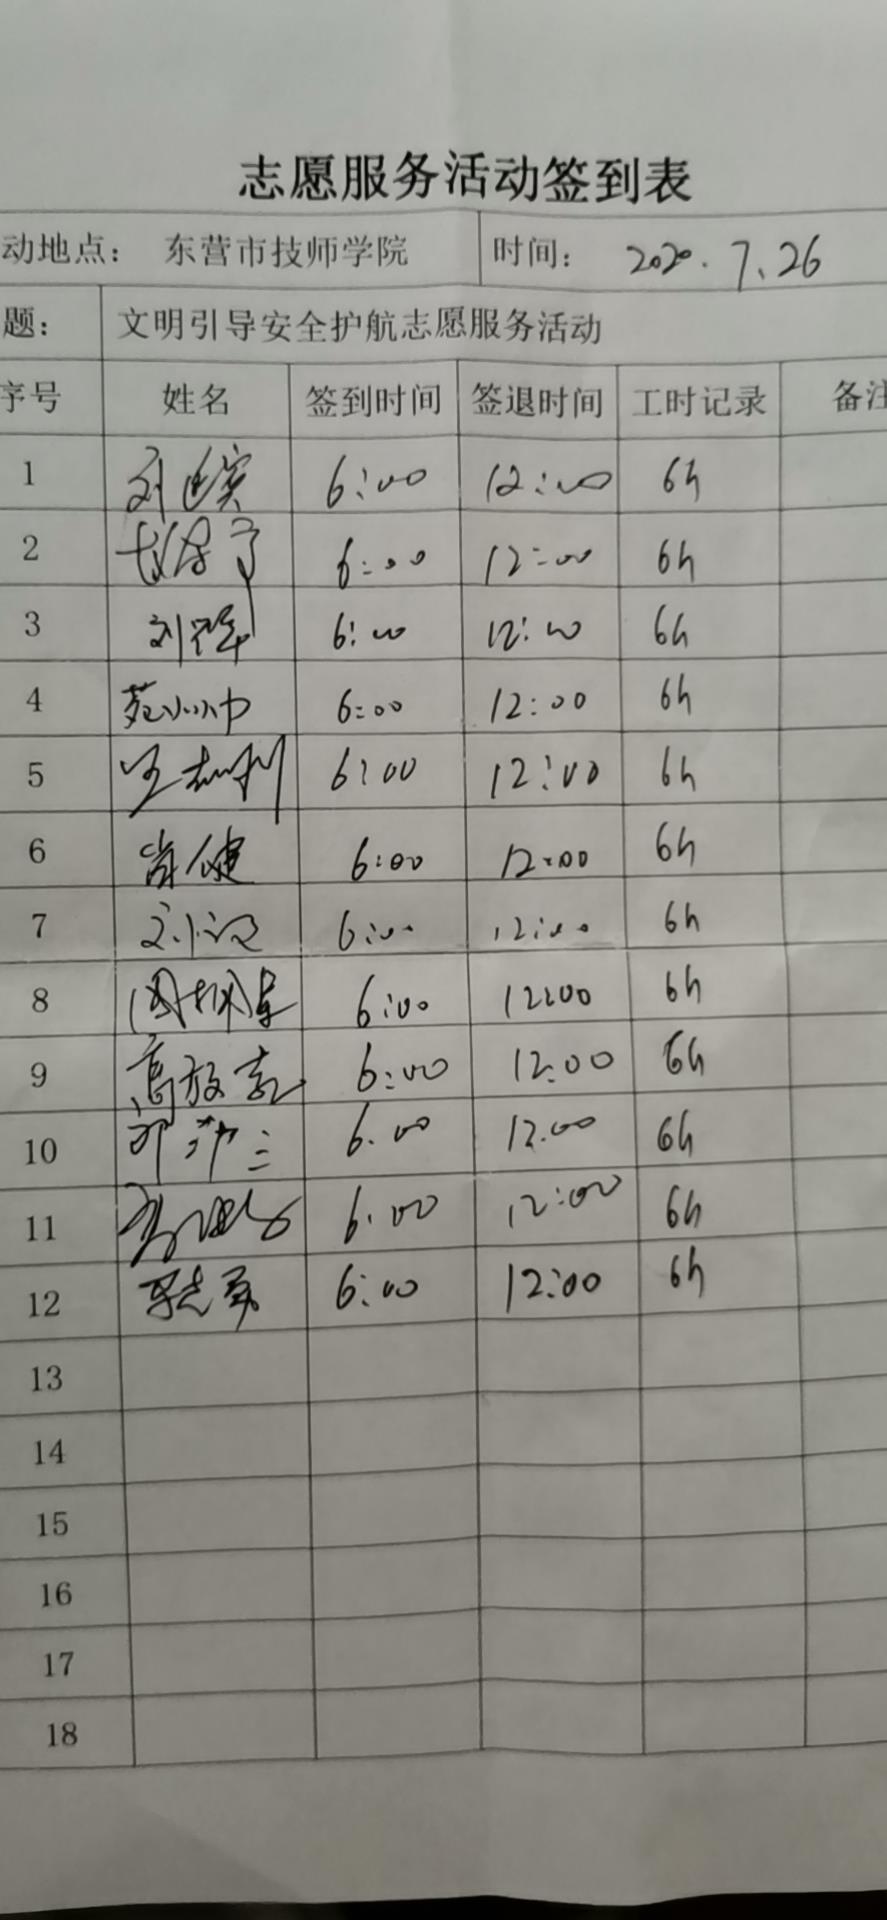 志愿服务活动签到表
动地点： 东营市技师学院 时间： 2020.7.26
题： 文明引导安全护航志愿服务活动
序号 姓名 签到时间 签退时间 工时记录 备注
1 6:00 12:00 6h
2 6:00 12:00 6h
3 刘 6:00 12:00 6h
4 苑小小巾 6:00 12:00 6h
5 王志利 6:00 12:00 6h
6 肖健 6:00 12:00 6h
7 6:00 12:00 6h
8 6:00 12:00 6h
9 高放 6:00 12:00 6h
10 6.00 12.00 6h
11 6.00 12:00 6h
12 6:00 12:00 6h
13
14
15
16
17
18